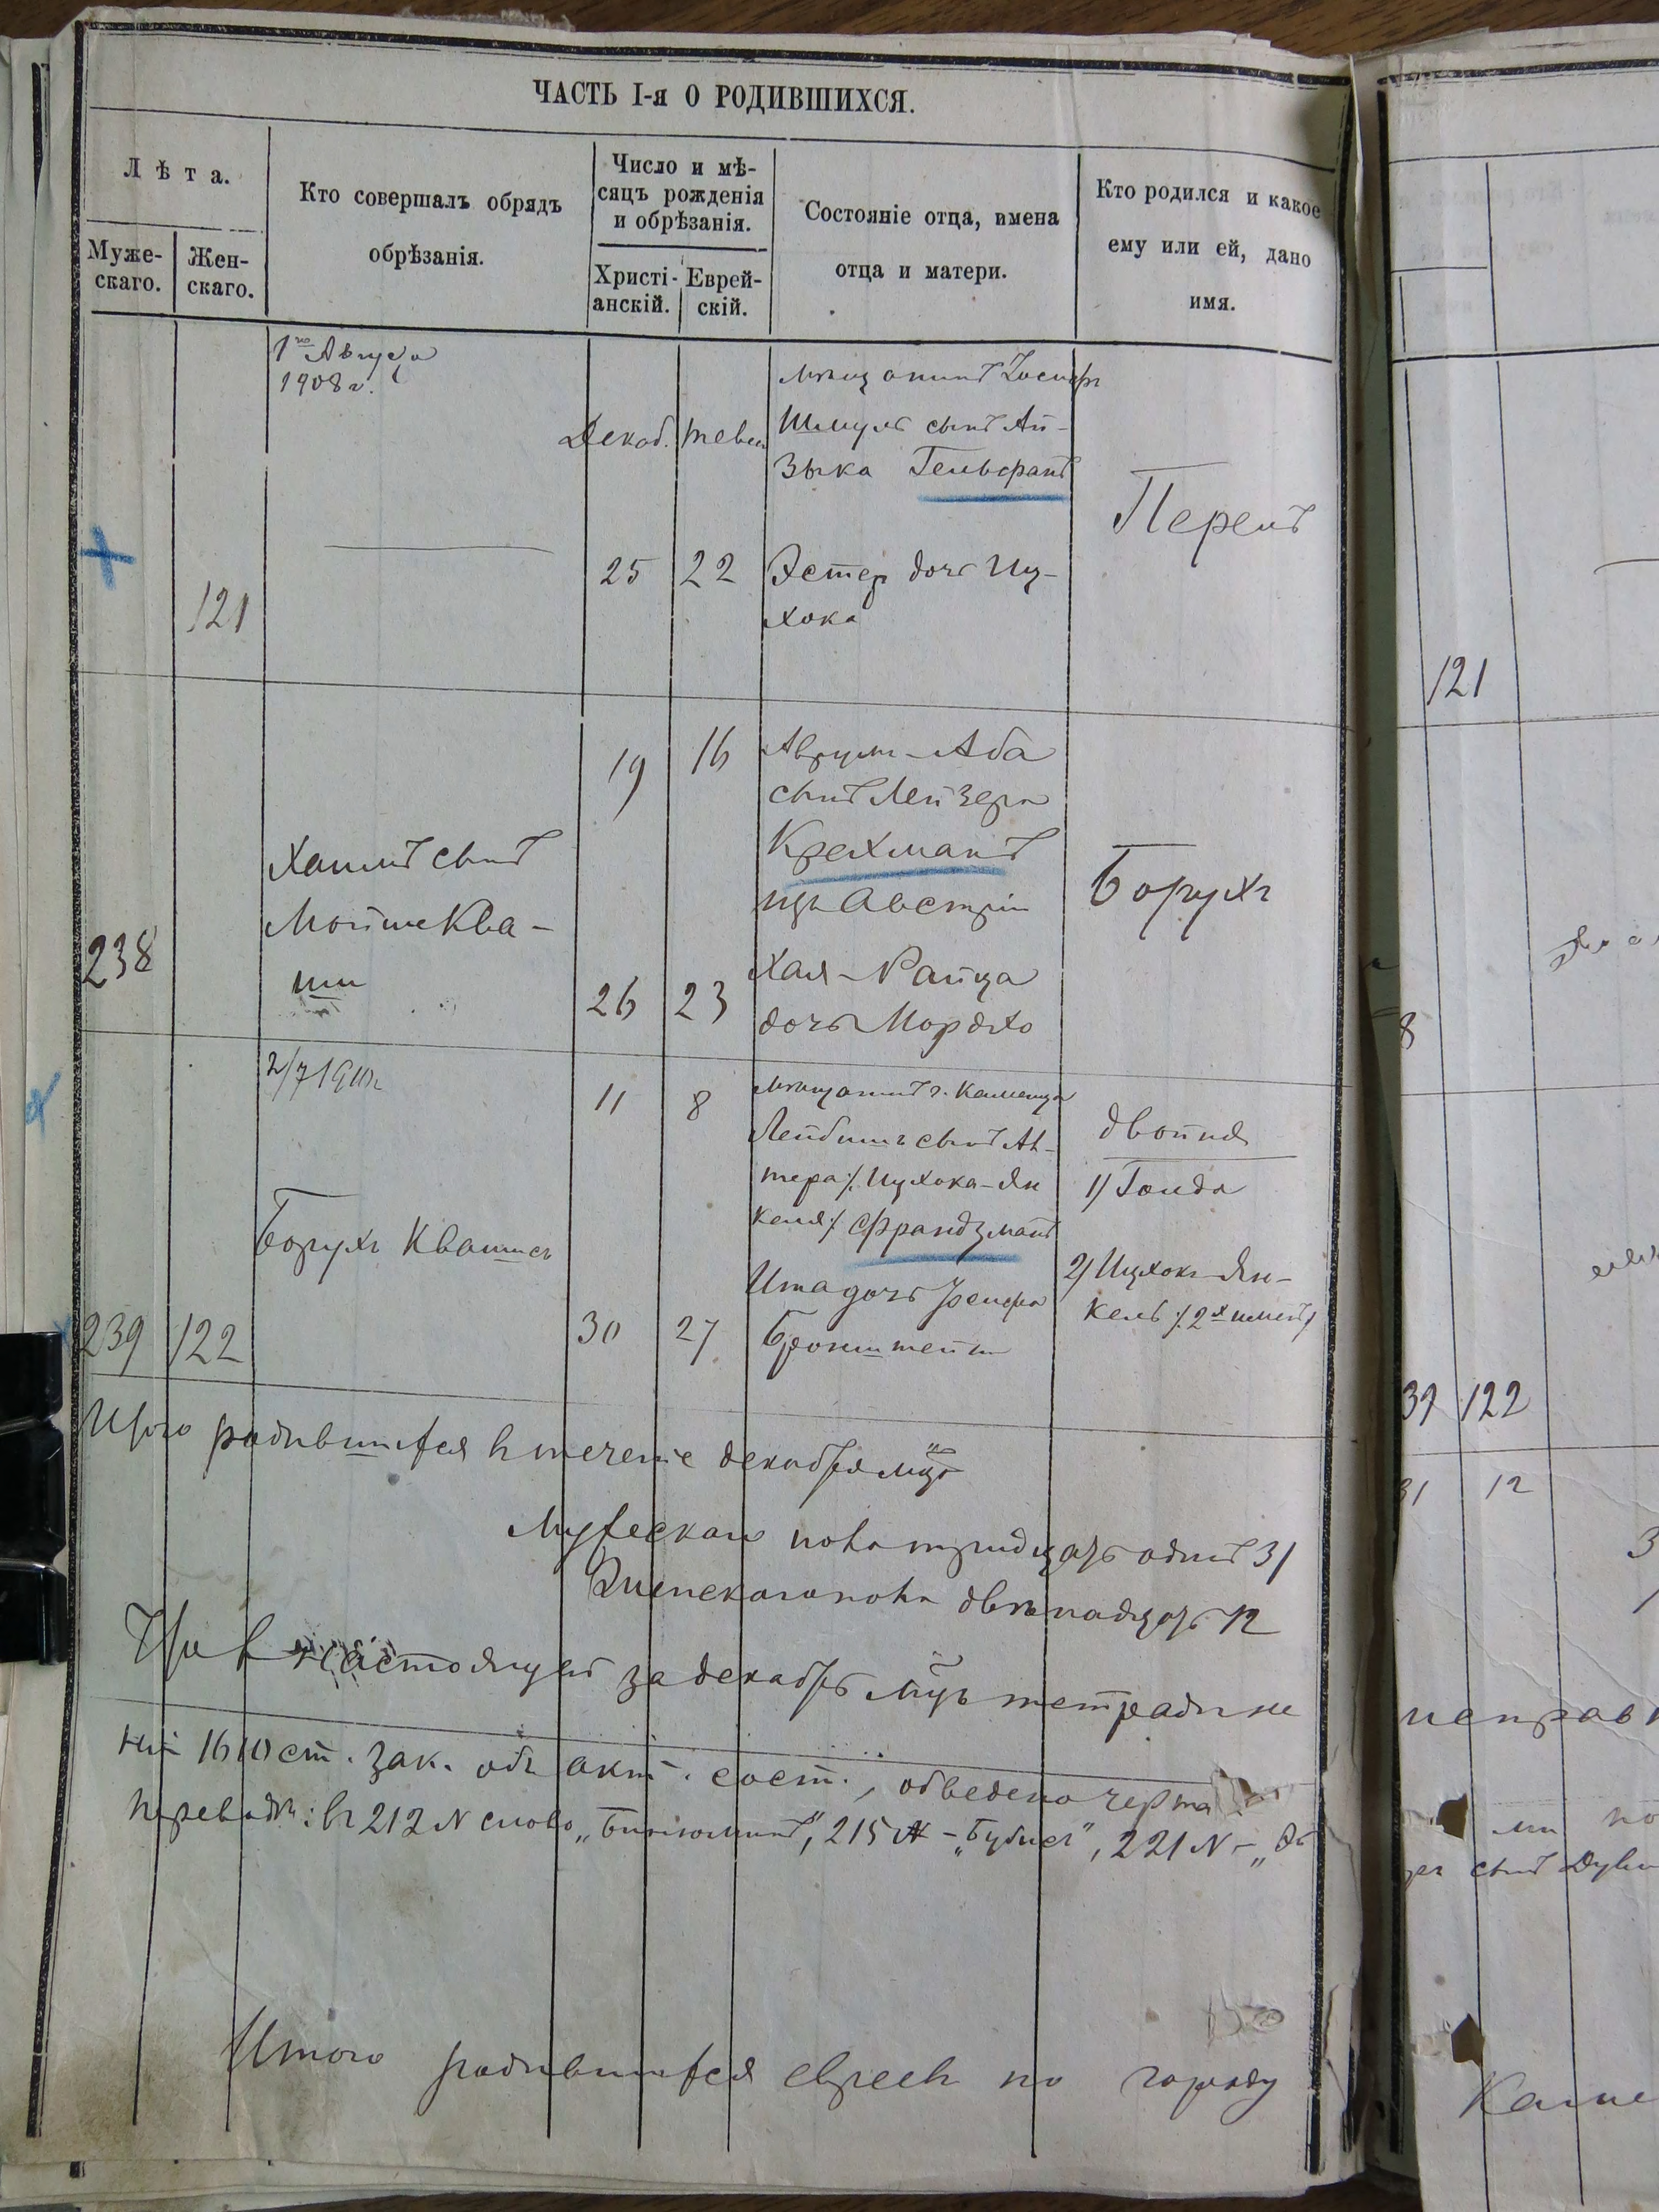 ЧАСТЬ I-я О РОДИВШИХСЯ.
Лѣта.
Муже-
скаго.
Жен-
скаго.
Кто совершалъ обрядъ
обрѣзанія.
Число и мѣ-
сяцъ рожденія
и обрѣзанія.
Христі-
анскій.
Еврей-
скій.
Состояніе отца, имена
отца и матери.
Кто родился и какое
ему или ей, дано
имя.
121
1го Августа
1908 г.
Декаб.
25
тевеи
22
мѣщанинъ Іосифъ
Шмуль сынъ Ай-
зыка Гельфанъ
Эстер дочь Иц-
хока
Перелъ
238
Хаимъ сынъ
Мойше Ква-
ши
19
26
16
23
Аврум-Аба
сынъ Лейзера
Крахманъ
изъ Австріи
Хая-Райца
дочь Мордхо
Борухъ
239
122
2/7 1911 г.
Борухъ Квашис
11
30
8
27
мѣщанинъ г. Каменца
Лейбишъ сынъ Ал-
тера /. Ицхока-Ян
келя ./ Франдзманъ
Ита дочь Іосифа
Бронштейн
двойня
1) Голда
2) Ицхокъ-Ян-
кель /. 2х именъ /
Итого родившихся въ теченіе декабря мца
Мужескаго пола тридцать одинъ 31
Женскаго пола двѣнадцать 12
Что въ настоящей за декабрь мцъ тетради не
ній 1610 ст. зак. объ акт. сост., обведено черта
перевод : въ 212 N слово „Биньюминъ", 215 N - „Бубис", 221 N - „Эс
Итого родившихся евреев по городу
121
8
39 122
31 12
3
исправ
ми по
сынъ Дув
Каме